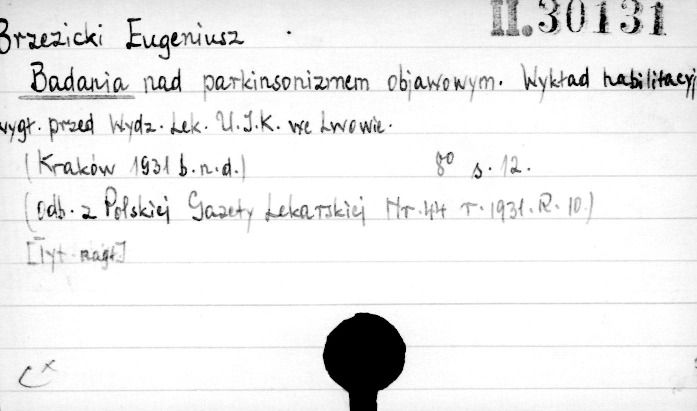 II.30131
Brzezicki Eugeniusz
Badania nad parkinsonizmem objawowym. Wykład habilitacyj
wygł. przed Wydz. Lek. U.J.K. we Lwowie.
(Kraków 1931 b.n.d.) 8° s. 12.
(odb. z Polskiej Gazety Lekarskiej Nr. 44 r. 1931. R. 10.)
[Tyt. nagł]